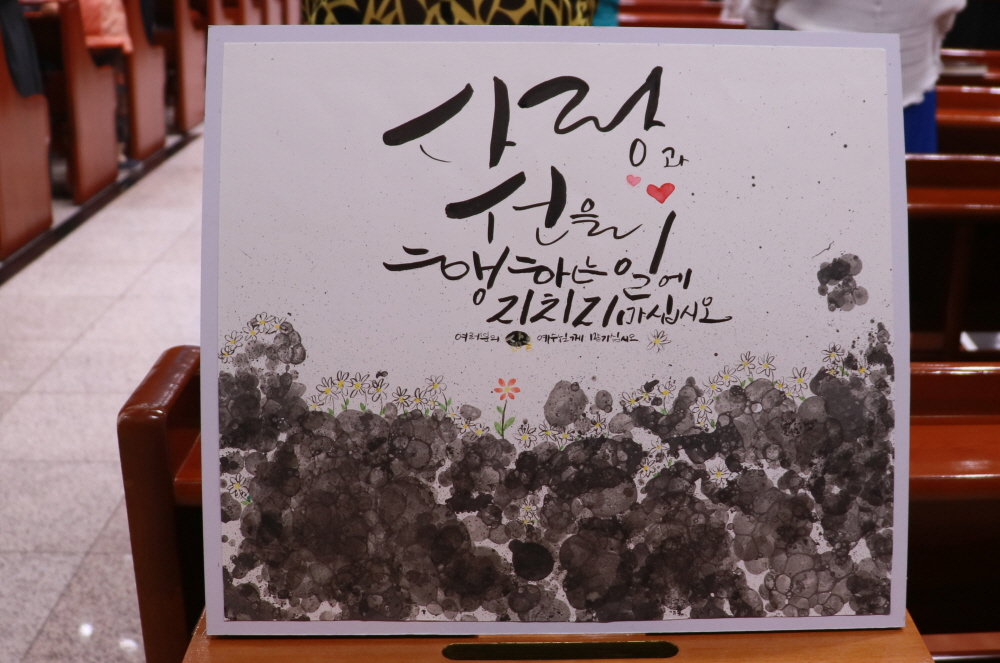 사랑과
선을
행하는 일에
지치지 마십시오
여러분의 삶 예수님께 맡기십시오